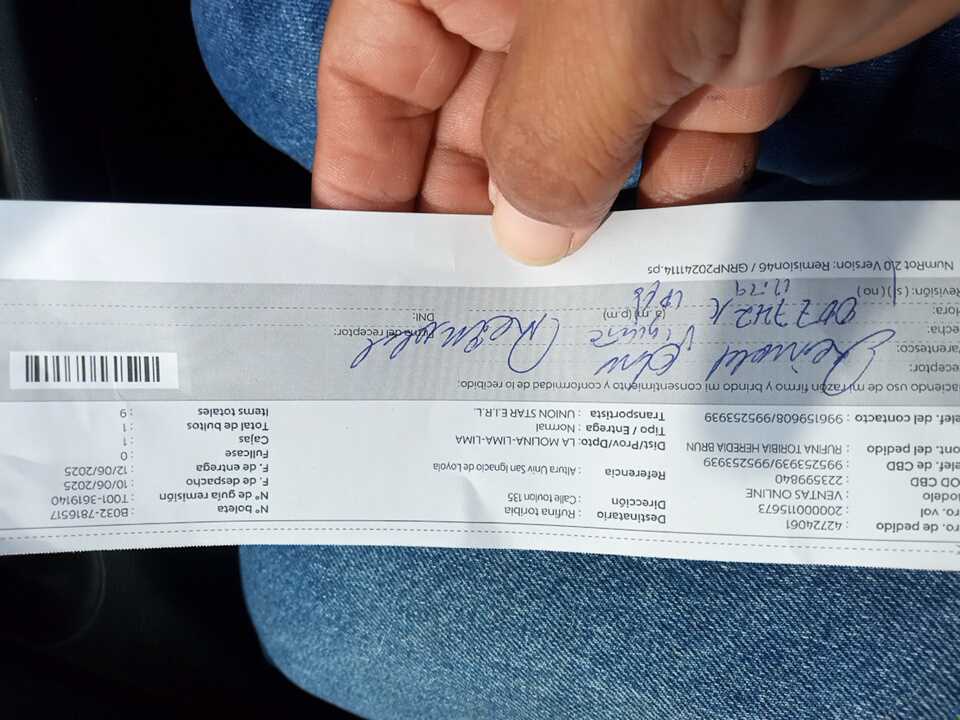 ro. de pedido : 42724061
ro. vol : 20000015673
odelo : VENTAS ONLINE
OD CBD : 235599840
elef. de CBD : 995253939/995253939
ont. del pedido : RUFINA TORIBIA HEREDIA BRUN
elef. del contacto : 996159608/995253939
Destinatario : Rufina toribia
Dirección : Calle toulon 135
Referencia : Altura Univ San Ignacio de Loyola
Dist/Prov/Dpto: LA MOLINA-LIMA-LIMA
Tipo / Entrega : Normal
Transportista : UNION STAR E.I.R.L.
Nº boleta : B032-7816517
Nº de guía remisión : T001-3619140
F. de despacho : 10/06/2025
F. de entrega : 12/06/2025
Fullcase : 0
Cajas : 1
Total de bultos : 1
Items totales : 9
aciendo de uso de mi razón firmo y brindo mi consentimiento y conformidad de lo recibido:
eceptor:
arentesco:
echa:
ora: (a.m) (p.m)
Revisión: ( si ) ( no )
Firma del receptor:
DNI:
NumRot 2.0 Version: Remision46 / GRNP20241114.ps